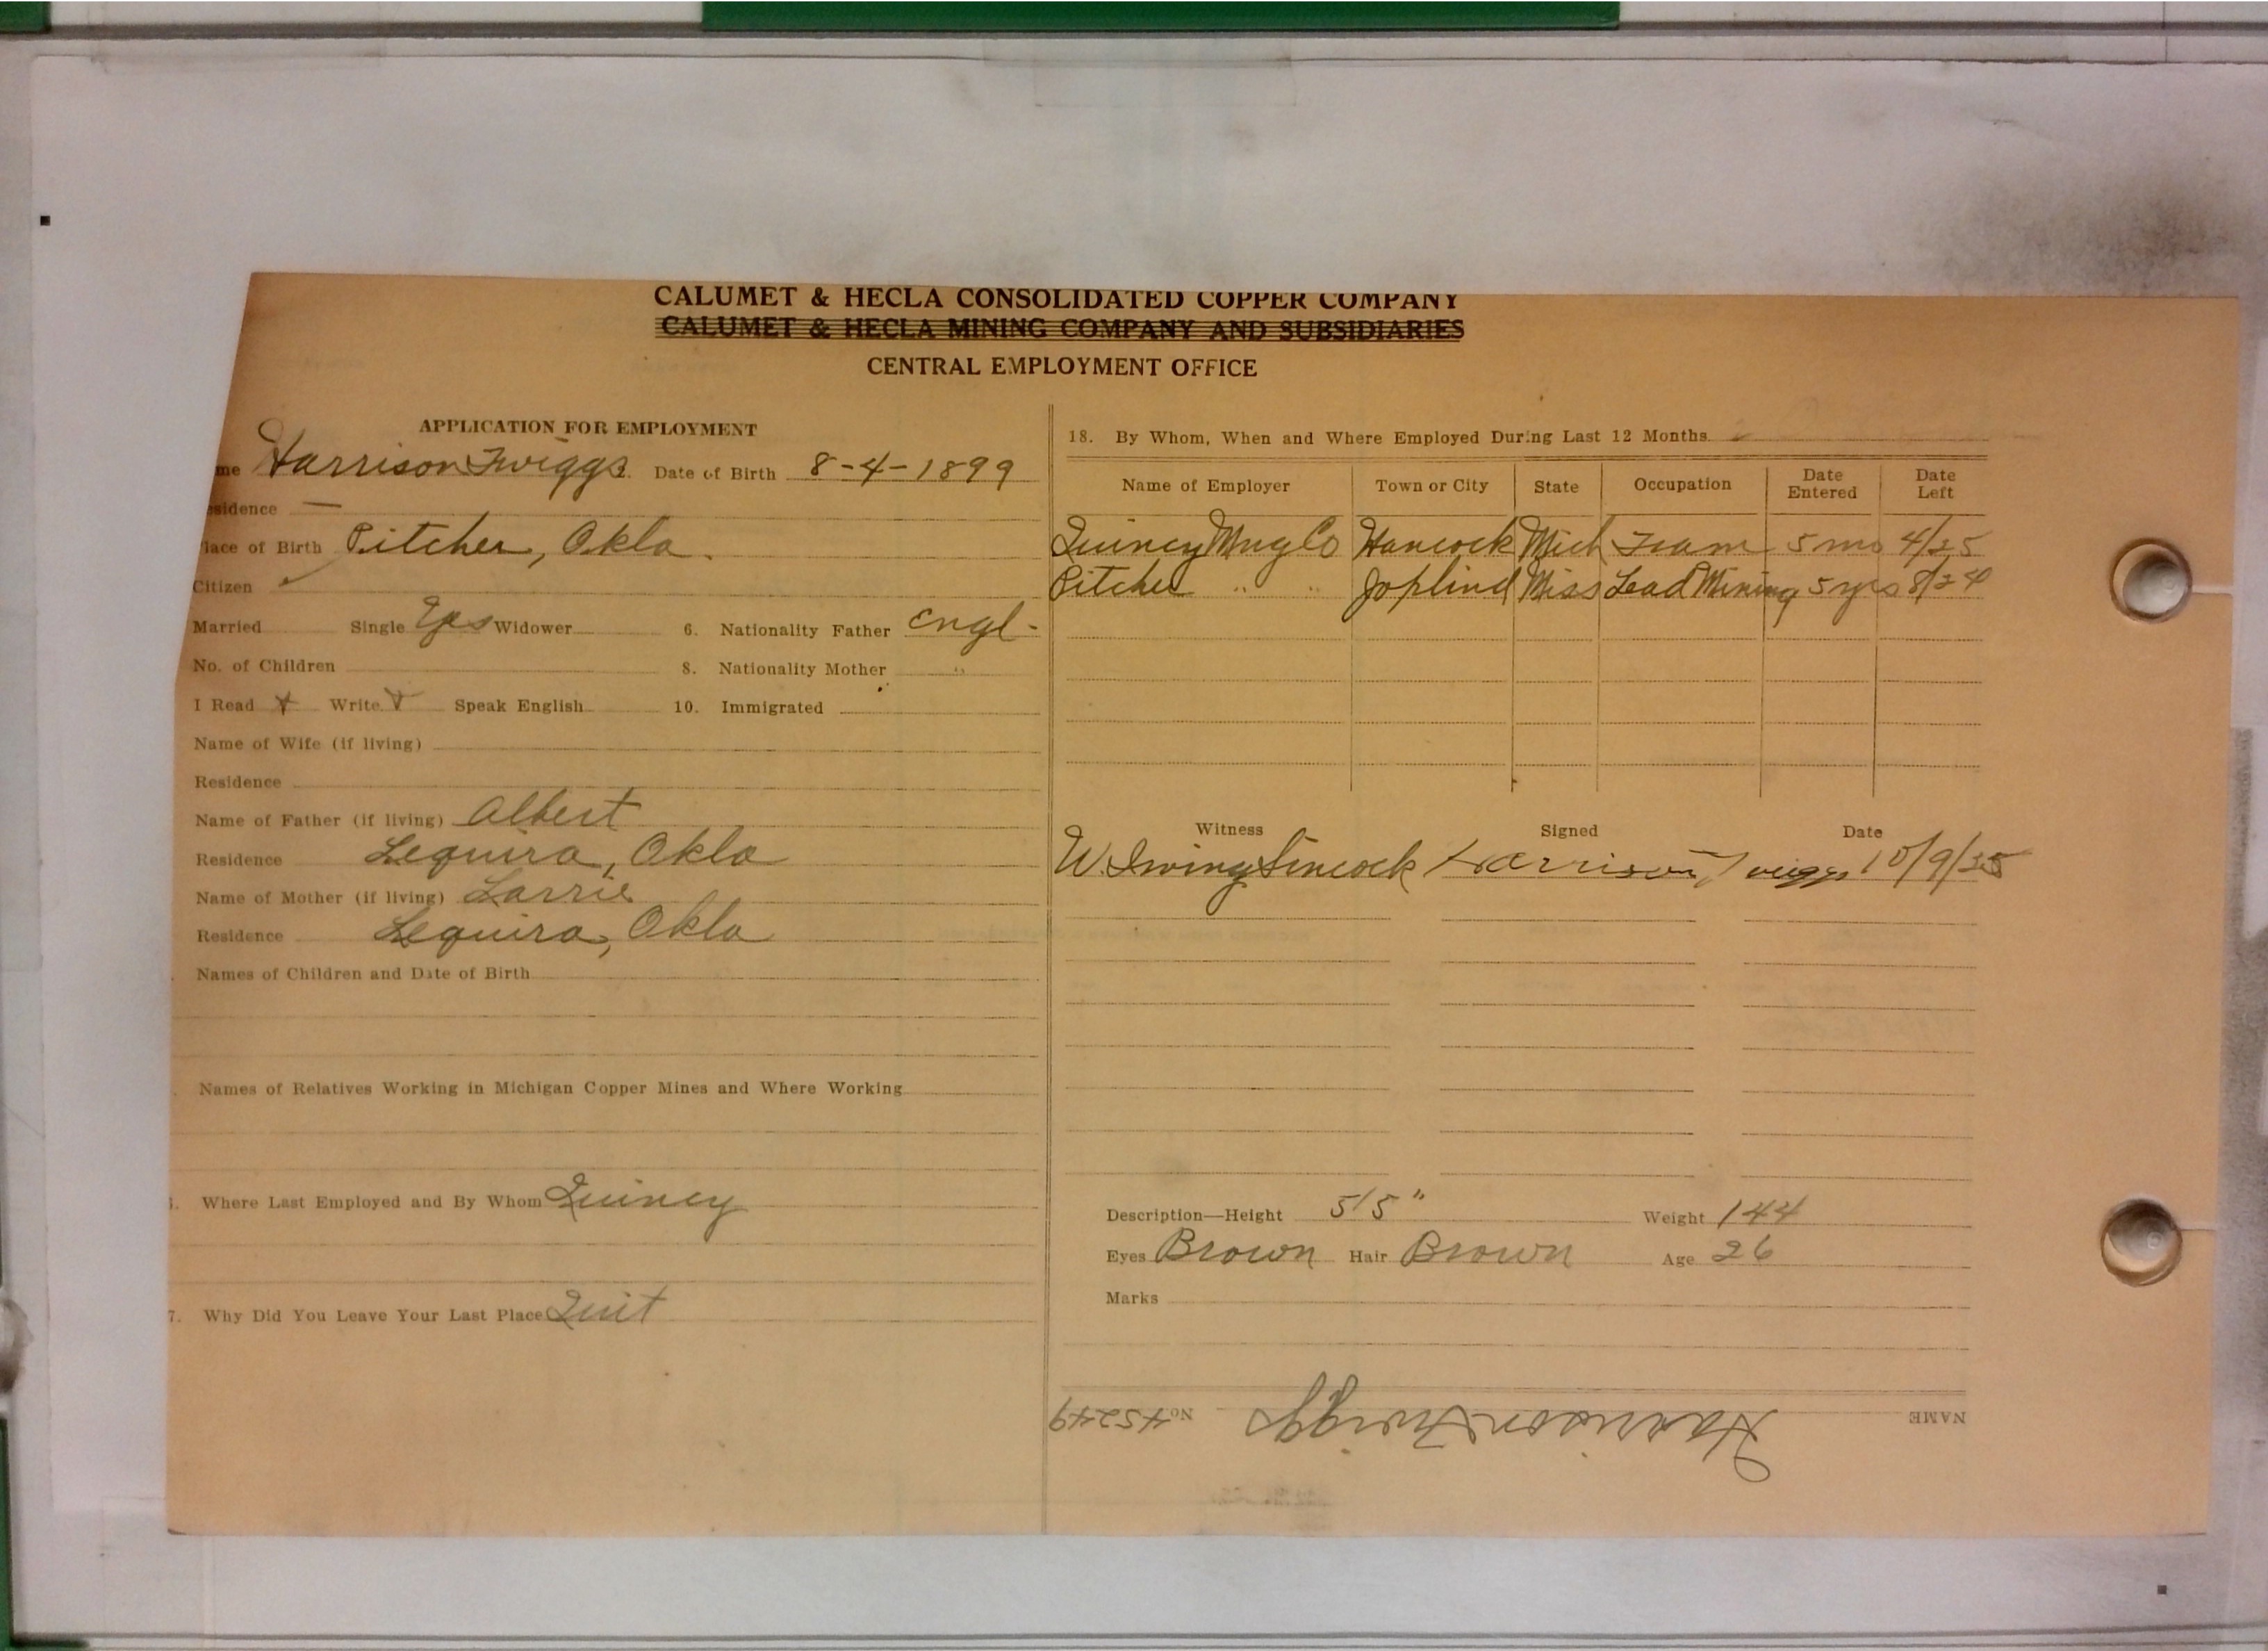 CALUMET & HECLA CONSOLIDATED COPPER COMPANY
CALUMET & HECLA MINING COMPANY AND SUBSIDIARIES
CENTRAL EMPLOYMENT OFFICE
APPLICATION FOR EMPLOYMENT
me Harrison Twiggs 2. Date of Birth 8-4-1899
esidence —
lace of Birth Pitcher, Okla.
Citizen ✓
Married Single Yes Widower 6. Nationality Father Engl-
No. of Children 8. Nationality Mother "
I Read Write Speak English 10. Immigrated
Name of Wife (if living)
Residence
Name of Father (if living) Albert
Residence Lequira, Okla
Name of Mother (if living) Larrie
Residence Lequira, Okla
Names of Children and Date of Birth
Names of Relatives Working in Michigan Copper Mines and Where Working
Where Last Employed and By Whom Quincy
7. Why Did You Leave Your Last Place Quit
18. By Whom, When and Where Employed During Last 12 Months
Name of Employer Town or City State Occupation Date Entered Date Left
Quincy Mng Co Hancock Mich Tram 5 mo 4/25
Pitcher " " Joplind Miss Lead Mining 5 yrs 8/24
Witness Signed Date
W. Irving Sincock Harrison Twiggs 10/9/25
Description—Height 5'5" Weight 144
Eyes Brown Hair Brown Age 26
Marks
NAME Harrison Twiggs No. 45249